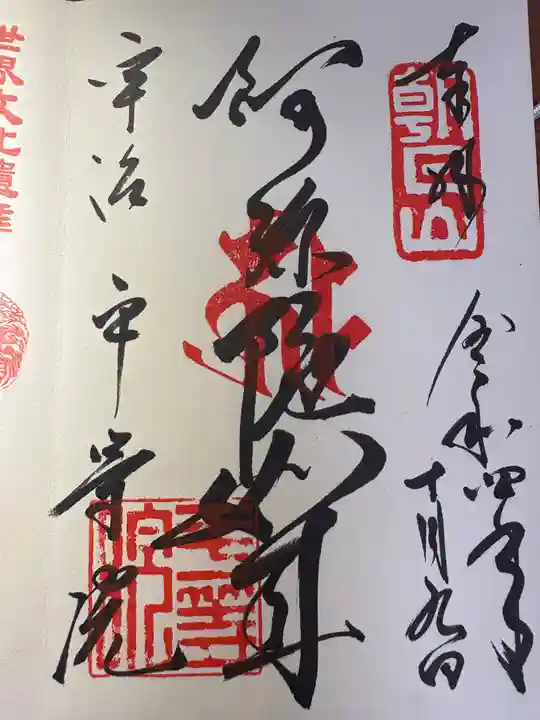 奉拝
朝日山
令和四年
十月九日
阿弥陀如来
宇治 平等院
平等院印
世界文化遺産